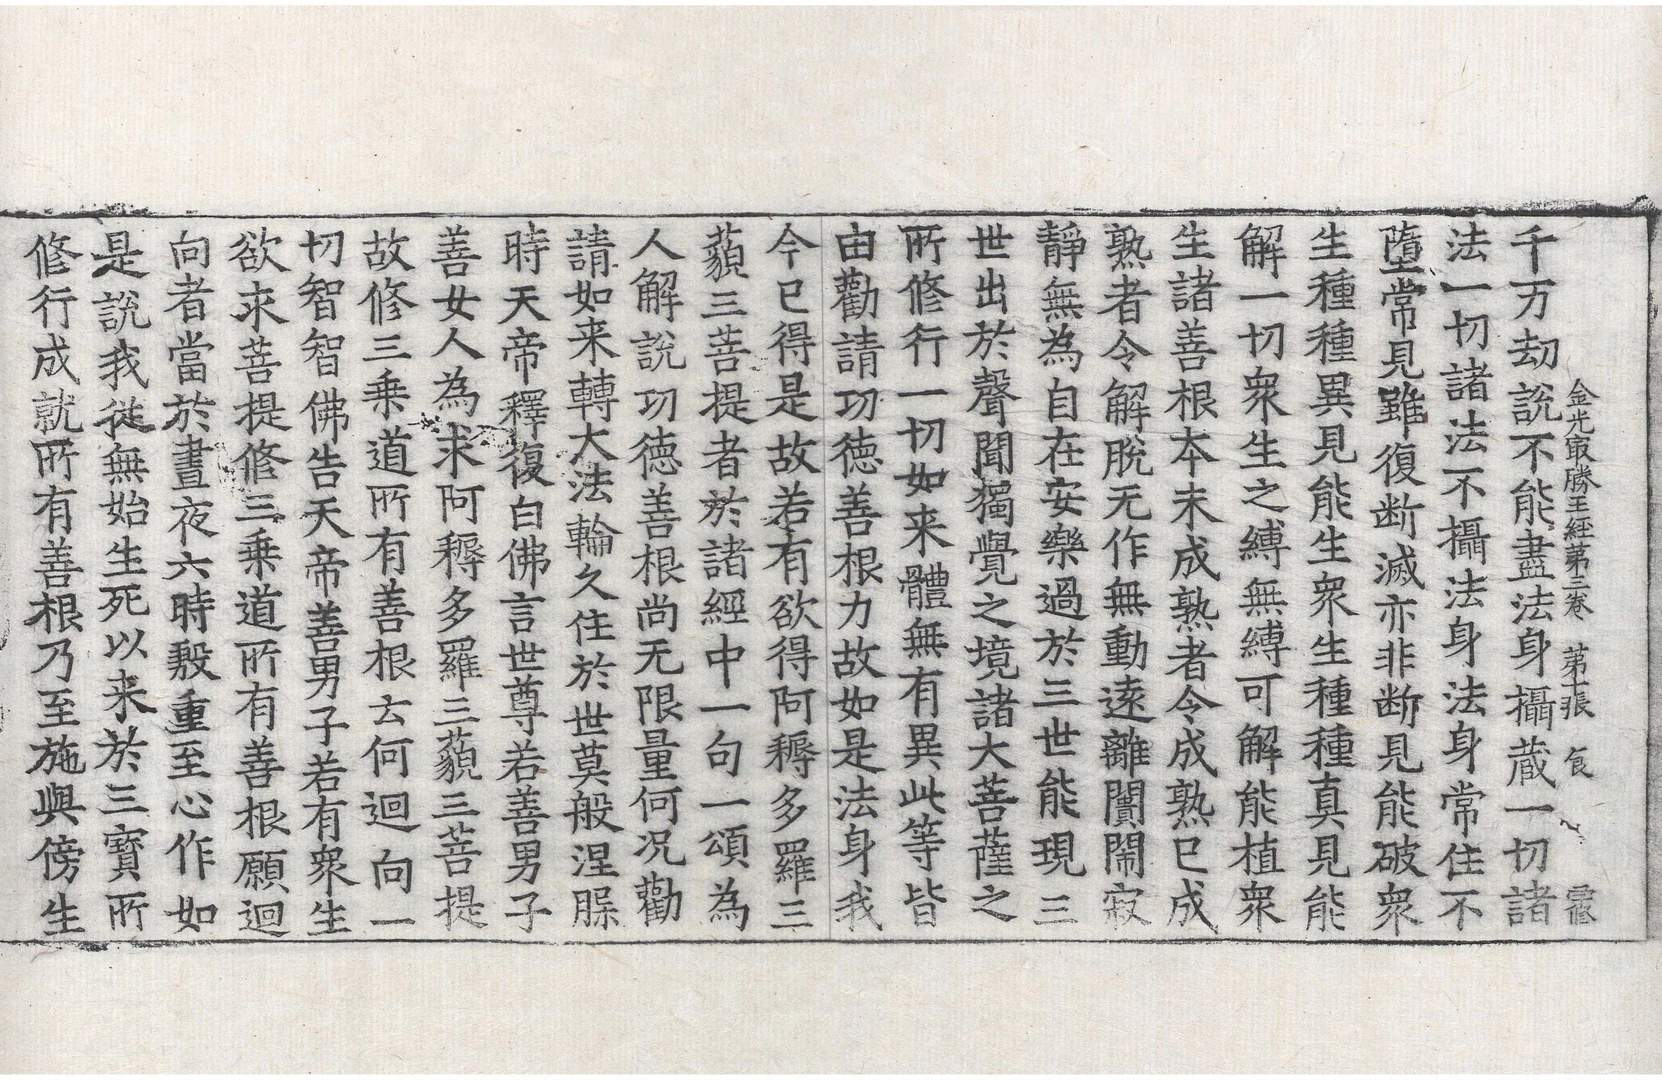 金光㝡勝王經第三卷 第十張 食
千万劫說不能盡法身攝蔵一切諸
法一切諸法不攝法身法身常住不
墮常見雖復断滅亦非断見能破衆
生種種異見能生衆生種種真見能
解一切衆生之縛無縛可解能植衆
生諸善根本未成熟者令成熟已成
熟者令解脫无作無動遠離闠閙寂
靜無為自在安樂過於三世能現三
世出於聲聞獨覺之境諸大菩薩之
所修行一切如来體無有異此等皆
由勸請功德善根力故如是法身我
今已得是故若有欲得阿耨多羅三
藐三菩提者於諸經中一句一頌為
人解說功德善根尚无限量何況勸
請如来轉大法輪久住於世莫般涅槃
時天帝釋復白佛言世尊若善男子
善女人為求阿耨多羅三藐三菩提
故修三乗道所有善根云何迴向一
切智智佛告天帝善男子若有衆生
欲求菩提修三乗道所有善根願迴
向者當於晝夜六時慇重至心作如
是說我從無始生死以来於三寶所
修行成就所有善根乃至施與傍生